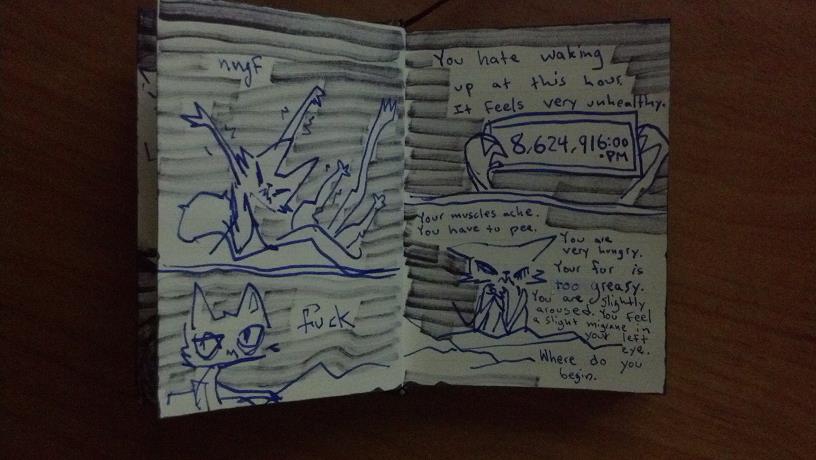 nngf
fuck
You hate waking
up at this hour.
It feels very unhealthy.
8,624,916:00
PM
Your muscles ache.
You have to pee.
You are
very hungry.
Your fur is
too greasy.
You are slightly
aroused. You feel
a slight migrane in
your left
eye.
Where do you
begin.